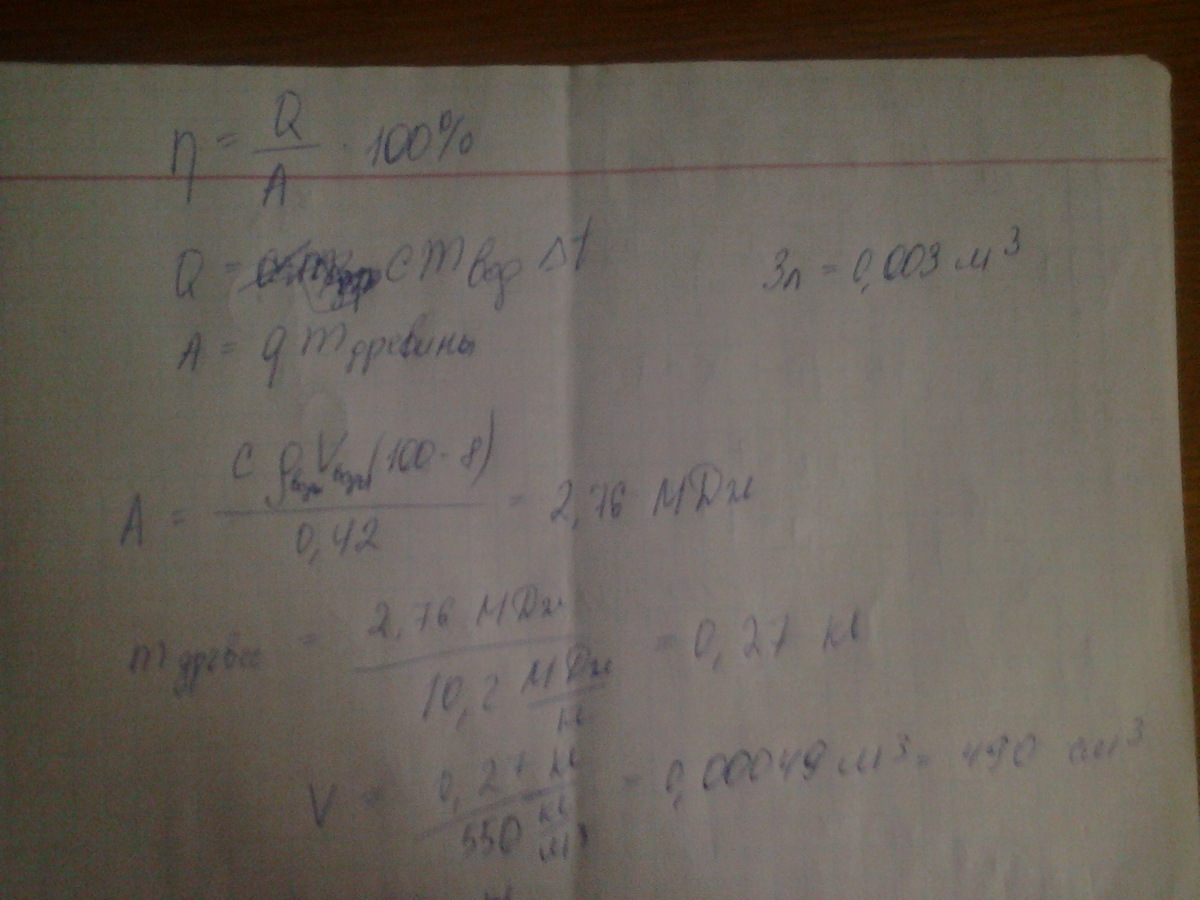 η = Q/A · 100%
Q = c m вод Δt
3л = 0,003 м³
A = q m древины
A = c ρводы Vводы (100-8) / 0,42 = 2,76 МДж
m древес = 2,76 МДж / 10,2 МДж/кг = 0,27 кг
V = 0,27 кг / 550 кг/м³ = 0,00049 м³ = 490 см³